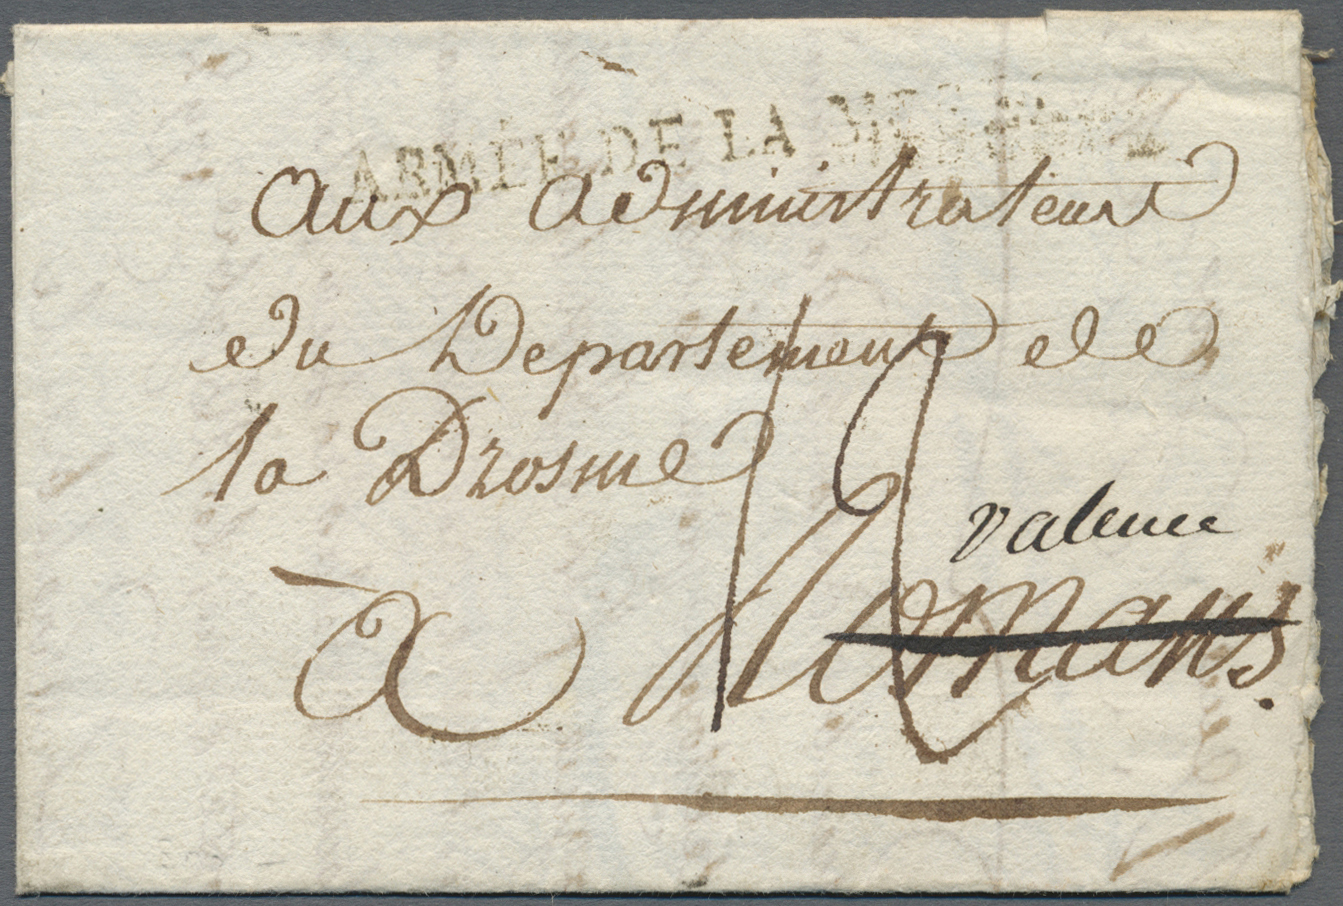 ARMÉE DE LA
aux administrateurs
du Departement de
la Drosme
valence
à Romans.
12